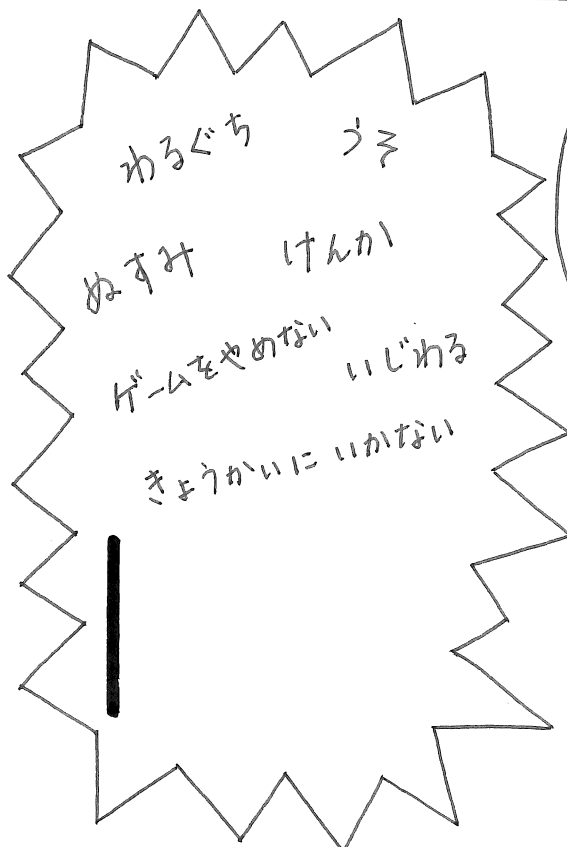 わるぐち　うそ
ぬすみ　けんか
ゲームをやめない
いじわる
きょうかいに いかない